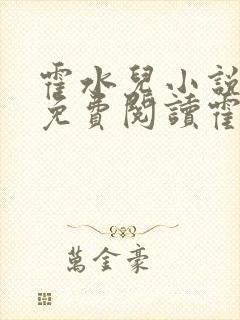 霍水兒小說
免費閱讀霍
萬金豪